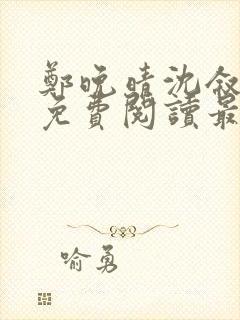 鄭晚晴沈敘
免費閱讀最
喻勇